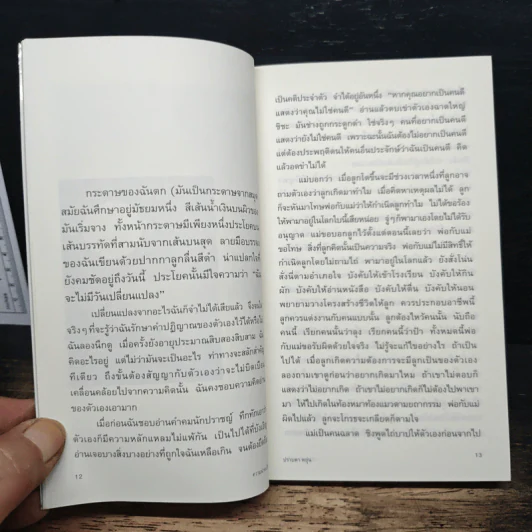 กระดาษของฉันตก (มันเป็นกระดาษจากสมุด
สมัยฉันศึกษาอยู่มัธยมหนึ่ง สีเส้นน้ำเงินบนผิวของ
มันเริ่มจาง ทั้งหน้ากระดาษมีเพียงหนึ่งประโยคบน
เส้นบรรทัดที่สามนับจากเส้นบนสุด ลายมือบรรจง
ของฉันเขียนด้วยปากกาลูกลื่นสีดำ น่าแปลกใจที่
ยังคมชัดอยู่ถึงวันนี้ ประโยคนั้นมีใจความว่า "ฉัน
จะไม่มีวันเปลี่ยนแปลง"
เปลี่ยนแปลงจากอะไรฉันก็จำไม่ได้เสียแล้ว จึง
จริงๆ ที่จะรู้ว่าฉันรักษาคำปฏิญาณของตัวเองไว้ได้หรือไม่
ฉันลองนึกดู เมื่อครั้งยังอายุประมาณสิบสองสิบสาม ฉัน
คิดอะไรอยู่ แต่ไม่ว่ามันจะเป็นอะไร ท่าทางจะสลักสำคัญ
ทีเดียว ถึงขั้นต้องสัญญากับตัวเองว่าจะไม่ยึด
เคลื่อนคล้อยไปจากความคิดนั้น ฉันคงชอบความคิด
ของตัวเองเอามาก
เมื่อก่อนฉันชอบอ่านคำคมนักปราชญ์
ตัวเองก็มีความหลักแหลมไม่แพ้กัน เป็นไปได้ที่
อ่านเจอบางสิ่งบางอย่างที่ถูกใจฉันเหลือเกิน จนต้อง
12
เป็นคติประจำตัว จำได้อยู่อันหนึ่ง "หากคุณอยากเป็นคนดี
แสดงว่าคุณไม่ใช่คนดี" อ่านแล้วตบเข่าตัวเองฉาดใหญ่
ชิชะ มันช่างถูกกระดูกดำ ใช่จริงๆ คนที่อยากเป็นคนดี
แสดงว่ายังไม่ใช่คนดี เพราะฉะนั้นฉันต้องไม่อยากเป็นคนดี
แต่ต้องประพฤติตนให้คนอื่นประจักษ์ว่าฉันเป็นคนดี คิด
แล้วอดขำไม่ได้
แม่บอกว่า เมื่อลูกโตขึ้นจะมีช่วงเวลาหนึ่งที่ลูกอาจ
ถามตัวเองว่าลูกเกิดมาทำไม เมื่อคิดหาเหตุผลไม่ได้ ลูก
ก็จะหันมาโทษพ่อกับแม่ว่าให้กำเนิดลูกทำไม ไม่ได้ขอร้อง
ให้พามาอยู่ในโลกใบนี้เสียหน่อย จู่ๆก็พามาเองโดยไม่ได้รับ
อนุญาต แม่ขอบอกลูกไว้ตั้งแต่ตอนนี้เลยว่า พ่อกับแม่
ขอโทษ สิ่งที่ลูกคิดนั้นเป็นความจริง พ่อกับแม่ไม่มีสิทธิ์ให้
กำเนิดลูกโดยไม่ถามไถ่ พามาอยู่ในโลกแล้ว ยังสั่งโน่น
สั่งนี่ตามอำเภอใจ บังคับให้เข้าโรงเรียน บังคับให้กิน
ผัก บังคับให้อ่านหนังสือ บังคับให้ตื่น บังคับให้นอน
พยายามวางโครงสร้างชีวิตให้ลูก ควรประกอบอาชีพนี้
ลูกควรแต่งงานกับคนแบบนั้น ลูกต้องไหว้คนนั้น นับถือ
คนนี้ เรียกคนนั้นว่าลุง เรียกคนนี้ว่าป้า ทั้งหมดนี้พ่อ
กับแม่ขอรับผิดด้วยใจจริง ไม่รู้จะแก้ไขอย่างไร ถ้าเป็น
ไปได้ เมื่อลูกเกิดความต้องการจะมีลูกเป็นของตัวเอง
ลองถามเขาดูก่อนว่าอยากเกิดมาไหม ถ้าเขาไม่ตอบก็
แสดงว่าไม่อยากเกิด ถ้าเขาไม่อยากเกิดก็ไม่ต้องไปพาเขา
มา ให้ไปเกิดในท้องหมาท้องแมวตามยถากรรม พ่อกับแม่
ผิดไปแล้ว ลูกจะโกรธจะเกลียดก็ตามใจ
แม่เป็นคนฉลาด ชิงพูดไถ่บาปให้ตัวเองก่อนจากไป
ปราบดา หยุ่น
13